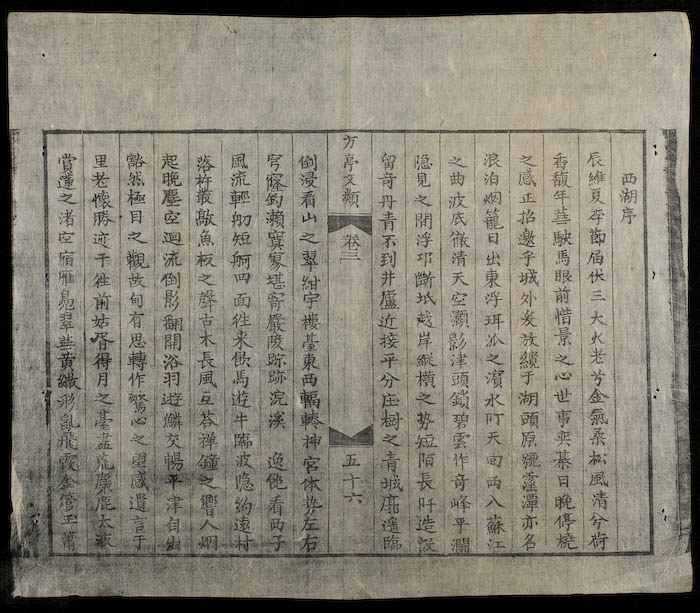 西湖序
辰維夏季節届伏三大火老兮金氣柔松風清兮荷
香馥年華駛馬眼前惜景之心世事奕棊日晚停橈
之感正招邀乎城外爰放纜于湖頭原號靈潭亦名
浪泊烟籠日出東浮珥派之濱水天回西入蘇江
之曲波底徹清天空灝影津頭鎖碧雲作奇峰平瀾
隐見之間浮邛斷坻越岸縱横之勢短陌長阡造設
留奇丹青不到井廬近接平分庄樹之青城廓遥臨
方亭文類 卷三 五十六
倒浸看山之翠紺宇樓臺東西輻輳神宮休勢左右
穹窿釣瀨寞寥堪寄嚴陵跡浣溪 逸他看西子
風流輕舠短舸四面往来飲馬遊牛臨波隐約遠村
落杵叢敲魚板之聲古木長風互荅禅鐘之響人烟
起晚塵空迴流倒影翻開浴羽遊鱗交暢平津自生
豁然極目之觀故旬有思轉作驚心之望感遺言于
里老懷勝迹于徃前姑胥得月之臺盡荒麋鹿太液
賞蓮之渚空宿雁鳧翠黄織亂飛霞金管玉簫